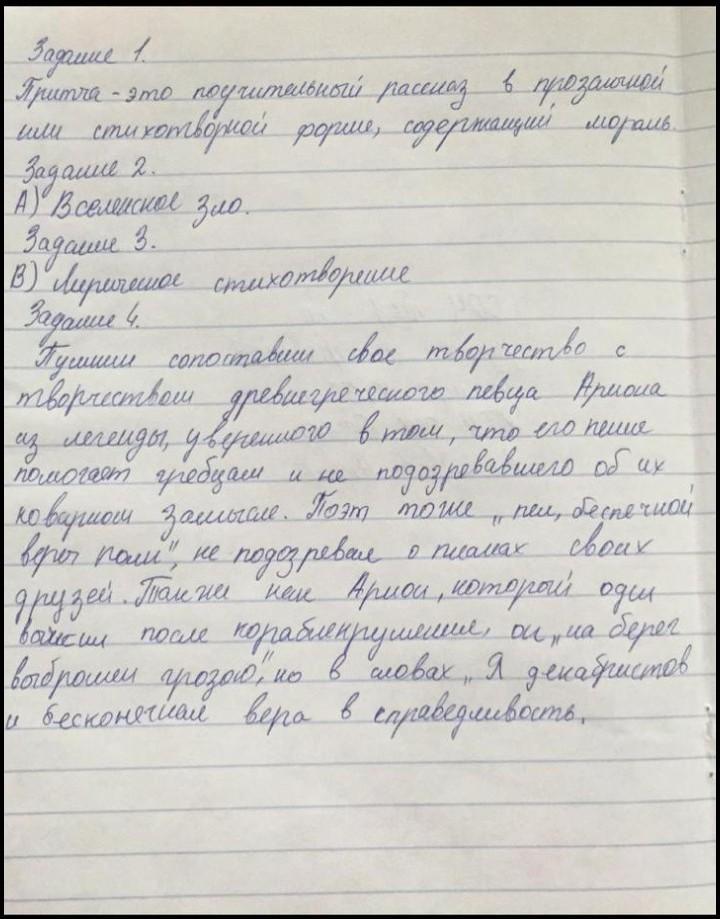 Задание 1.
Притча - это поучительный рассказ в прозаичной
или стихотворной форме, содержащий мораль.
Задание 2.
А) Вселенское зло.
Задание 3.
В) Лиричное стихотворение
Задание 4.
Пушкин сопоставил свое творчество с
творчеством древнегреческого певца Ариона
из легенды, уверенного в том, что его пение
помогает гребцам и не подозревавшего об их
коварном замысле. Поэт тоже „пел, беспечной
веры полн", не подозревал о планах своих
друзей. Так же как Арион, который один
выжил после кораблекрушения, он „на берег
выброшен грозою", но в словах „Я декабристов
и бесконечная вера в справедливость.